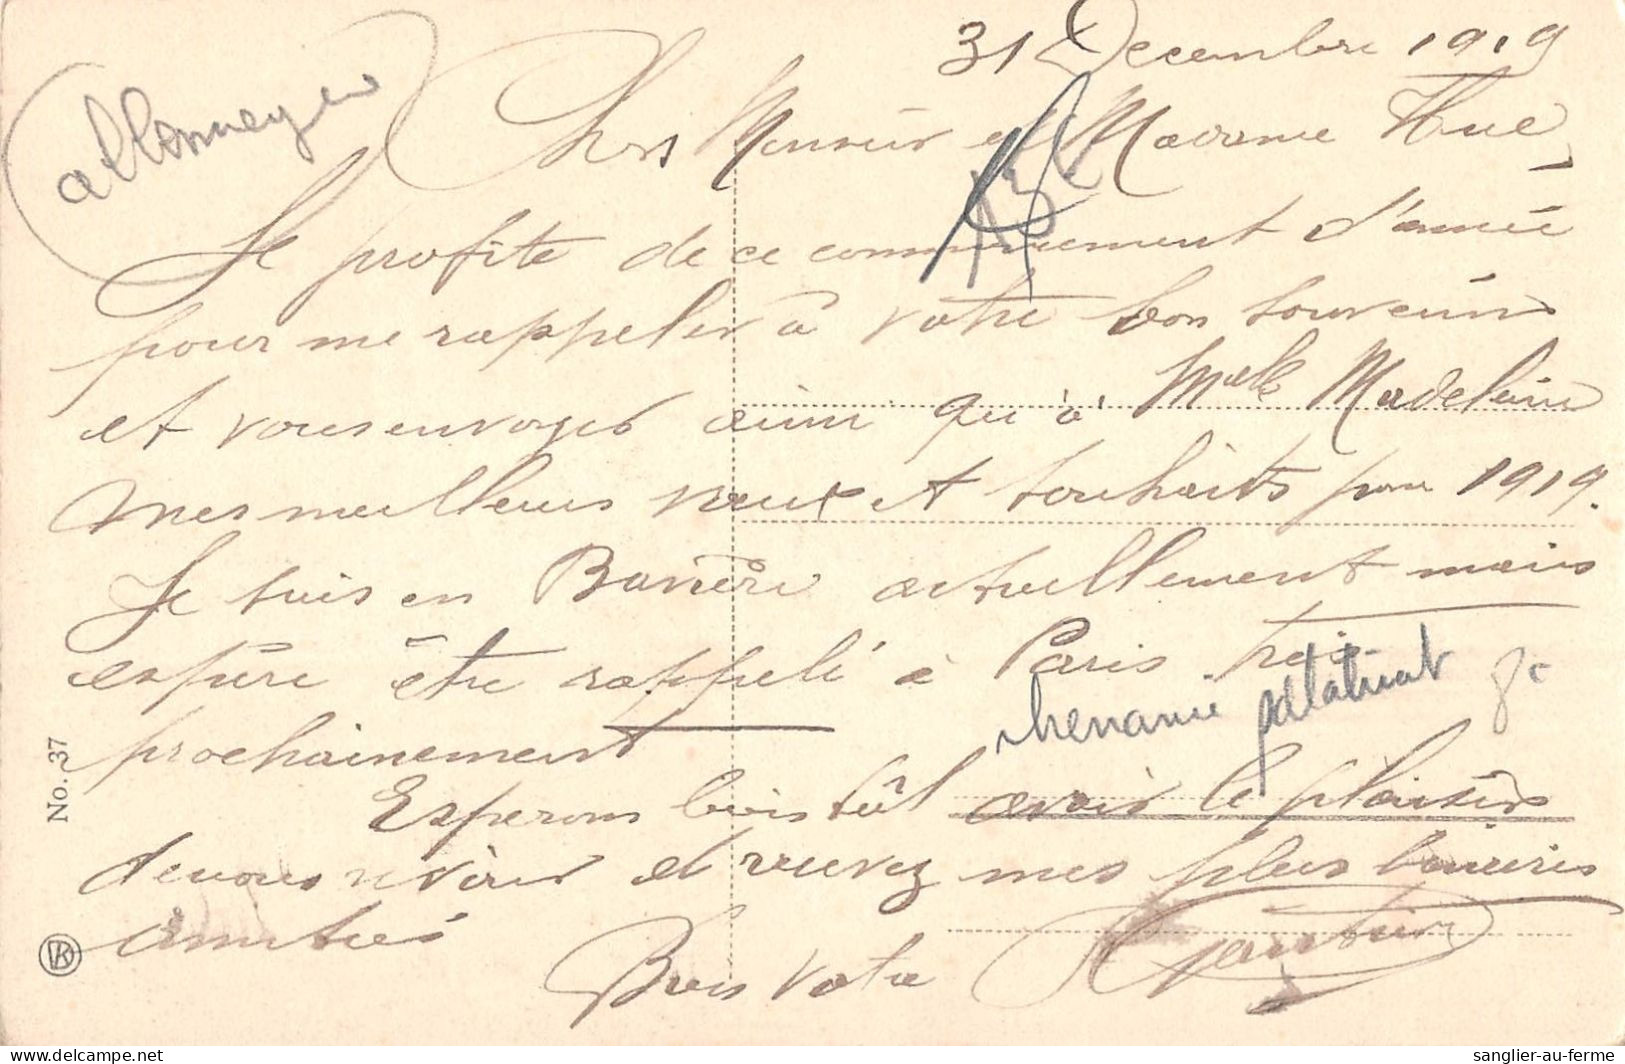 31 Decembre 1919
allemagne
Chers Monsieur et Madame Hue,
Je profite de ce commencement d'année
pour me rappeler à votre bon souvenir
et vous envoyer ainsi qu'à Melle Madeleine
mes meilleurs vœux et souhaits pour 1919.
Je suis en Bavière actuellement mais
espère être rappelé à Paris très
prochainement
rhenanie palatinat
Esperons bientôt avoir le plaisir
de vous revoir et recevez mes plus sincères
amitiés
Bien votre
No. 37
delcampe.net
sanglier-au-ferme